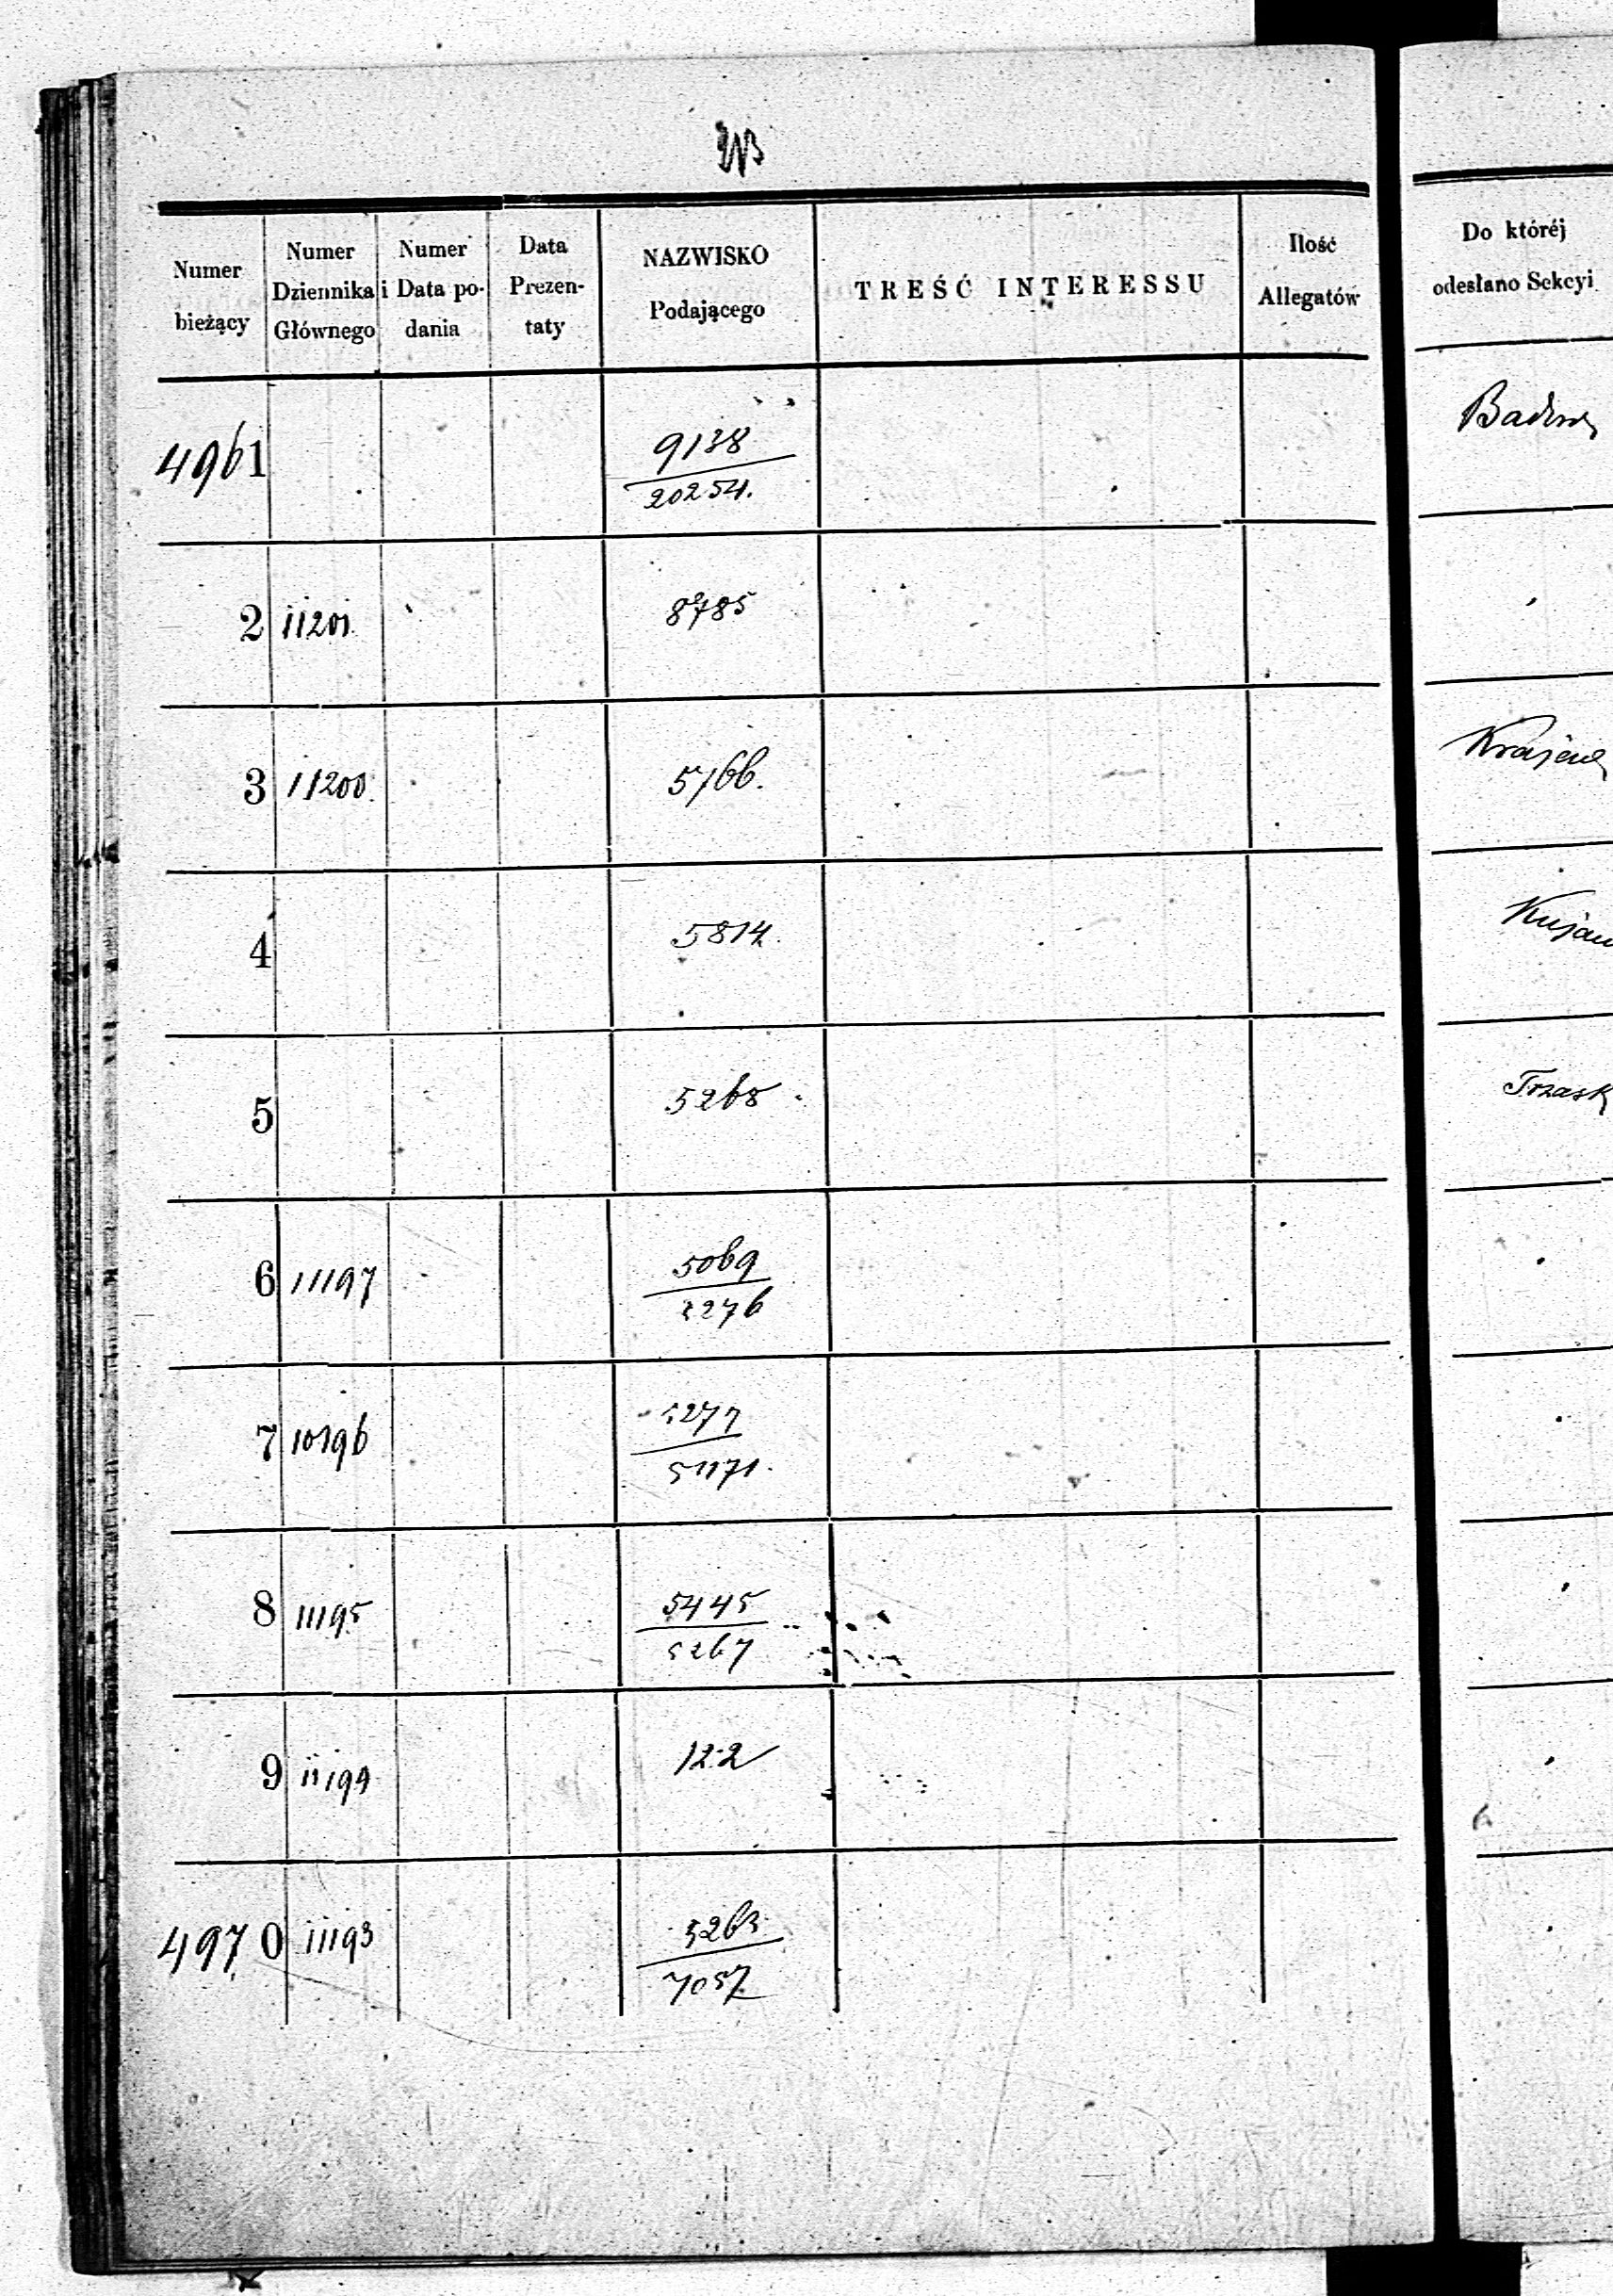 Numer bieżący
Numer Dziennika Głównego
Numer i Data podania
Data Prezentaty
NAZWISKO Podającego
TREŚĆ INTERESSU
Ilość Allegatów
Do któréj odesłano Sekcyi
4961 9138
20254.
2 11201. 8785
3 11200. 5766.
4 5814.
5 5268
Trzask
6 11197 5069
5276
7 10196 5277
51171.
8 11195 5445
5267
9 11194 122
4970 11193 5263
7057